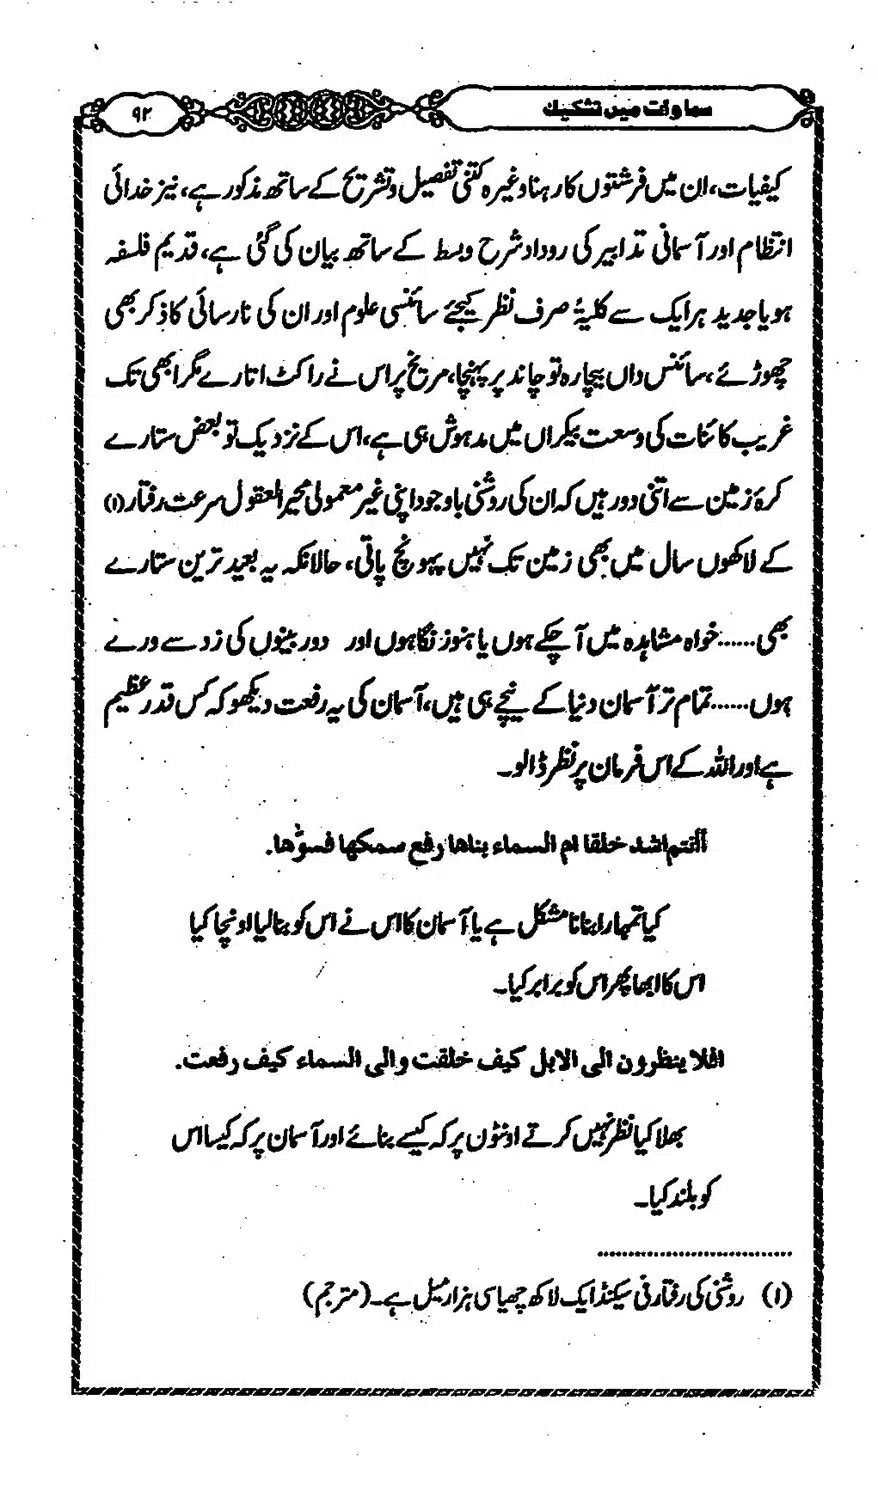 سماوات میں تشکیک
۹۲
کیفیات، ان میں فرشتوں کا رہنا وغیرہ کتنی تفصیل وتشریح کے ساتھ مذکور ہے، نیز خدائی
انتظام اور آسمانی تدابیر کی روداد شرح وبسط کے ساتھ بیان کی گئی ہے، قدیم فلسفہ
ہو یا جدید ہر ایک سے کلیۃً صرف نظر کیجئے سائنسی علوم اور ان کی نارسائی کا ذکر بھی
چھوڑئے، سائنس داں بیچارہ تو چاند پر پہنچا، مریخ پر اس نے راکٹ اتارے مگر ابھی تک
غریب کائنات کی وسعت بیکراں میں مدہوش ہی ہے، اس کے نزدیک تو بعض ستارے
کرۂ زمین سے اتنی دور ہیں کہ ان کی روشنی باوجود اپنی غیر معمولی محیر العقول سرعت رفتار (۱)
کے لاکھوں سال میں بھی زمین تک نہیں پہونچ پاتی، حالانکہ یہ بعید ترین ستارے
بھی......خواہ مشاہدہ میں آچکے ہوں یا ہنوز نگاہوں اور دوربینوں کی زد سے ورے
ہوں......تمام تر آسمان دنیا کے نیچے ہی ہیں، آسمان کی یہ رفعت دیکھو کہ کس قدر عظیم
ہے اور اللہ کے اس فرمان پر نظر ڈالو۔
أأنتم اشد خلقا ام السماء بناها رفع سمکها فسوّٰها.
کیا تمہارا بنانا مشکل ہے یا آسمان کا اس نے اس کو بنالیا اونچا کیا
اس کا ابھا پھر اس کو برابر کیا۔
افلا ینظرون الی الابل کیف خلقت والی السماء کیف رفعت.
بھلا کیا نظر نہیں کرتے اونٹوں پر کہ کیسے بنائے اور آسمان پر کہ کیسا اس
کو بلند کیا۔
(۱) روشنی کی رفتار فی سیکنڈ ایک لاکھ چھیاسی ہزار میل ہے۔ (مترجم)